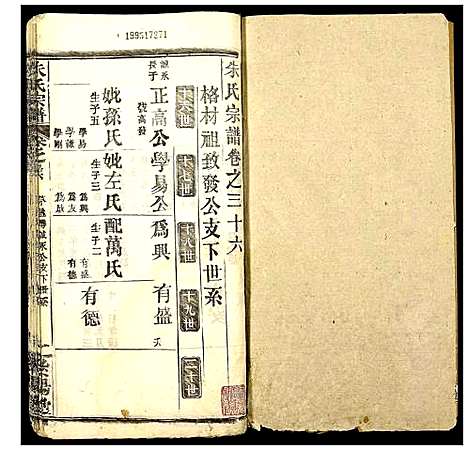 199517271
朱氏宗譜卷之三十六
格材祖致發公支下世系
十六世
十七世
十八世
十九世
二十世
誠永長子
正高公
號高發
學易公
為興
有盛
妣孫氏
生子五
學易
學謙
學剛
妣左氏
生子三
為興
為友
為啟
配萬氏
生子二
有盛
有德
有德
朱氏宗譜